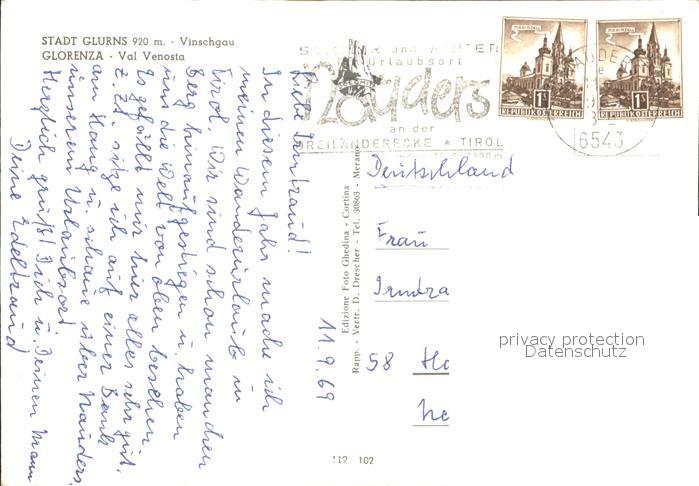 STADT GLURNS 920 m. - Vinschgau
GLORENZA - Val Venosta
SOMMER und WINTER
Urlaubsort
Nauders
an der
DREILÄNDERECKE * TIROL
MARIAZELL
1S
REPUBLIK ÖSTERREICH
MARIAZELL
1S
REPUBLIK ÖSTERREICH
NAUDERS
6543
Liebe Irmtraud!
In diesem Jahr mache ich
meinen Wanderurlaub in
Tirol. Wir sind schon manchen
Berg hinaufgestiegen u. haben
uns die Welt von oben besehen
Es gefällt mir hier alles sehr gut.
Z. Zt. sitze ich auf einer Bank
am Hang u. schaue über Nauders,
unserem Urlaubsort.
Herzlich grüßt Dich u. Deinen Mann
Deine Edeltraud
11.9.69
Edizione Foto Ghedina - Cortina
Rapp. - Vertr. D. Drescher - Tel. 30803 - Merano
Deutschland
Frau
Irmtra
58 Ha
privacy protection
Datenschutz
112 102